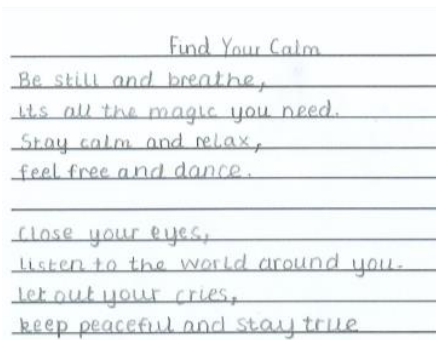 Find Your Calm
Be still and breathe,
its all the magic you need.
Stay calm and relax,
feel free and dance.
Close your eyes,
listen to the world around you.
let out your cries,
keep peaceful and stay true